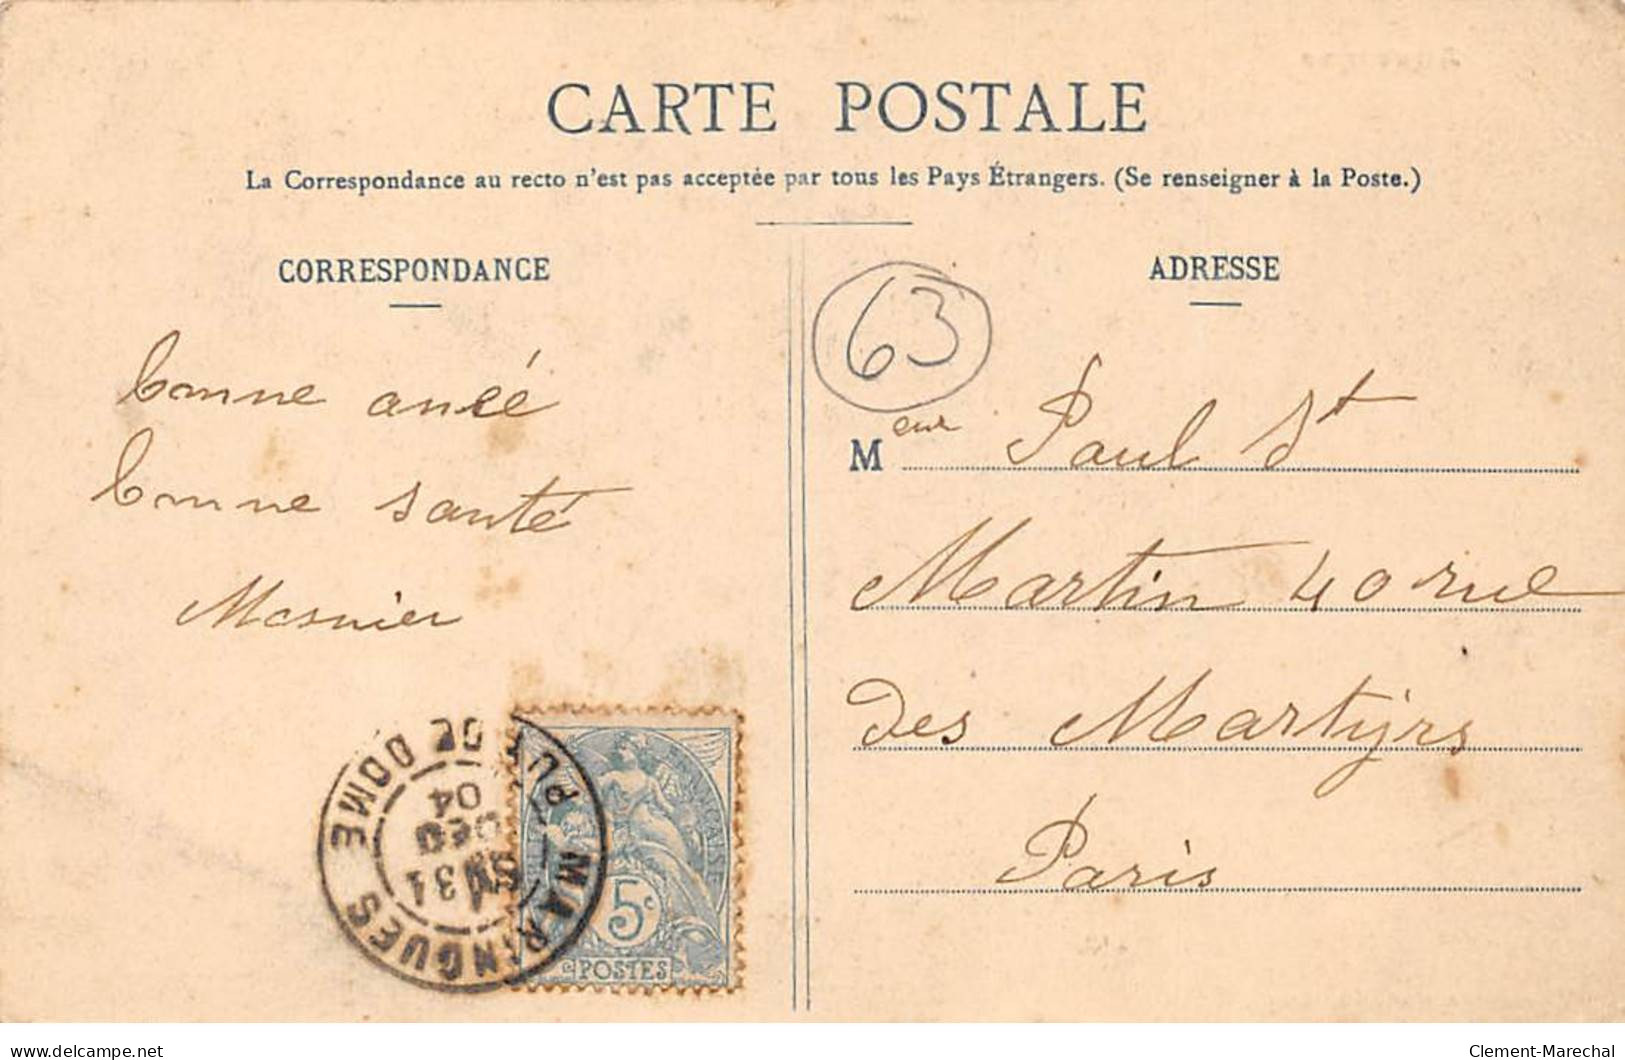 CARTE POSTALE
La Correspondance au recto n'est pas acceptée par tous les Pays Étrangers. (Se renseigner à la Poste.)
CORRESPONDANCE
bonne anéé
bonne santé
Mesnier
ADRESSE
63
Meur Paul St
Martin 40 rue
des Martyrs
Paris
MARINGUES
PUY DE DOME
31
DEC
04
5c
POSTES
delcampe.net
Clement-Marechal